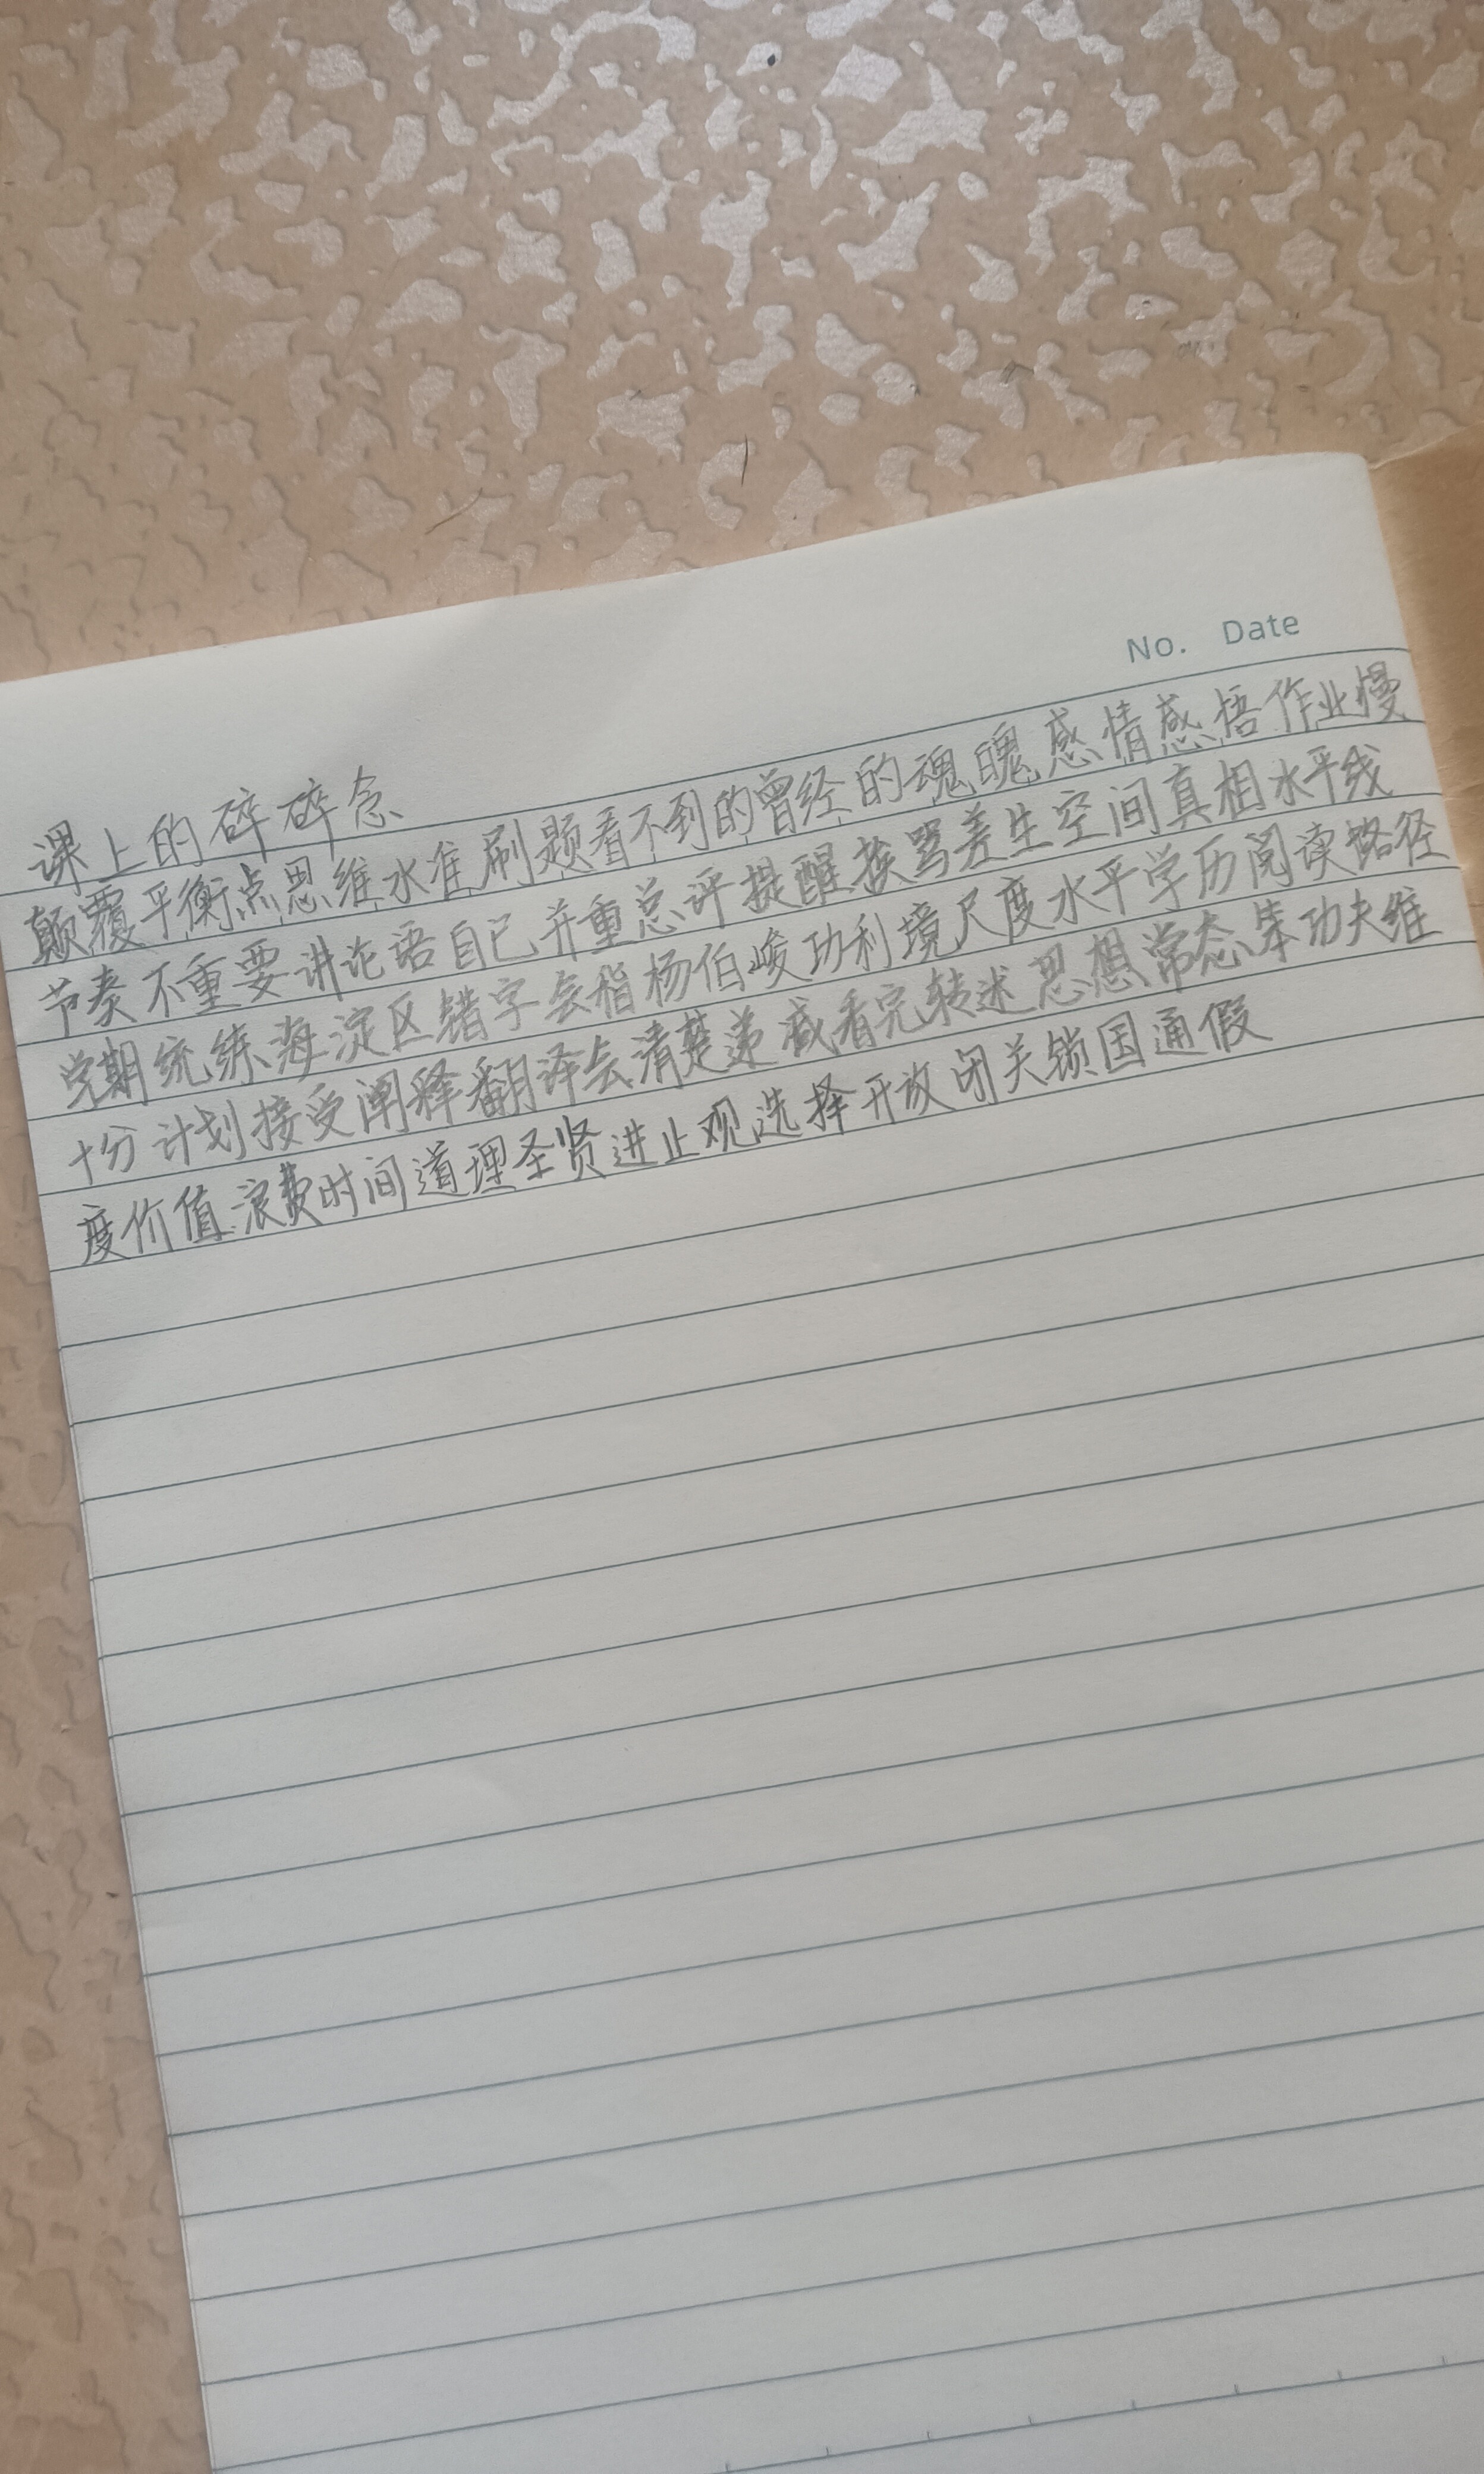 No. Date
课上的碎碎念
颠覆平衡点思维水准刷题看不到的曾经的魂魄感情感悟作业慢
节奏不重要讲论语自已并重总评提醒挨骂差生空间真相水平线
学期统练海淀区错字会指杨伯峻功利境尺度水平学历阅读路径
十分计划接受阐释翻译会清楚递减看完转述思想常态笨功夫维
度价值浪费时间道理圣贤进止观选择开放闭关锁国通假